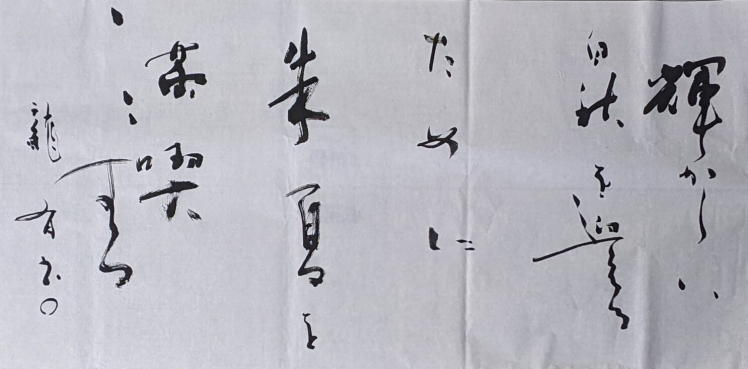 輝かしい
白秋を迎える
ために
朱夏を
満喫
する